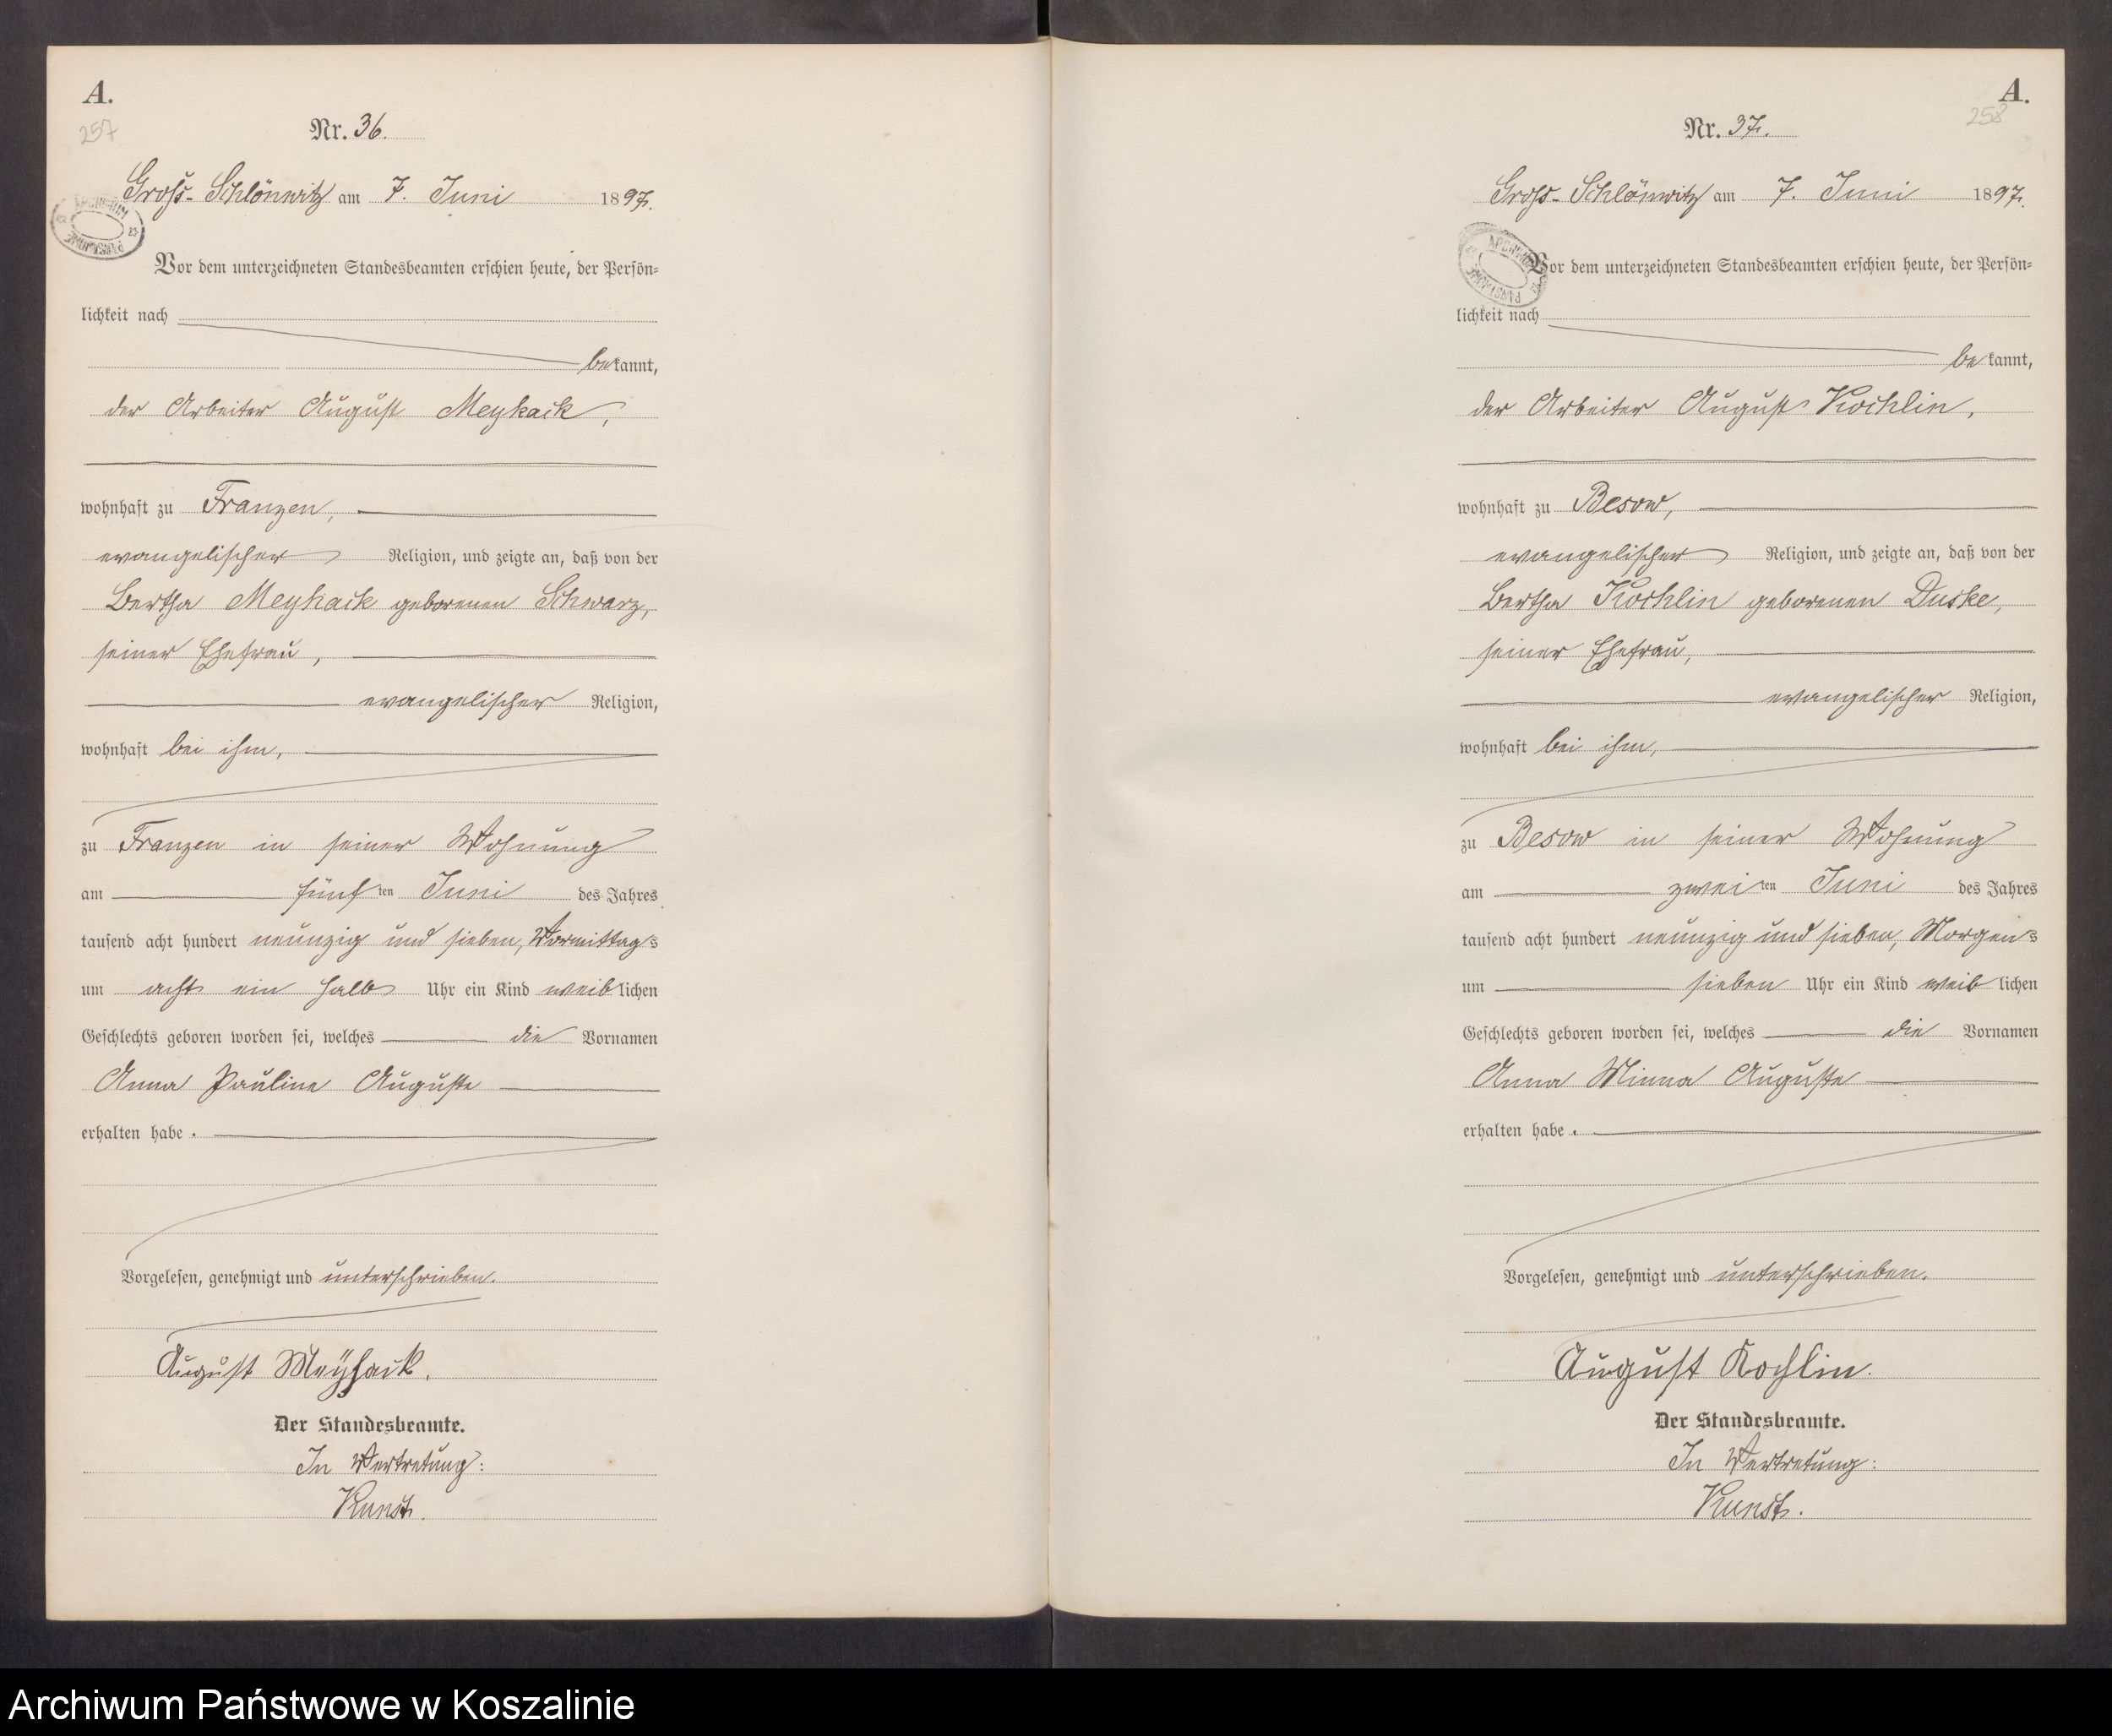 A.
257
Nr. 36.
Groß-Schlönwitz am 7. Juni 1897.
ARCHIWUM PAŃSTWOWE
Vor dem unterzeichneten Standesbeamten erschien heute, der Persön=
lichkeit nach
bekannt,
der Arbeiter August Meyhack,
wohnhaft zu Franzen,
evangelischer Religion, und zeigte an, daß von der
Bertha Meyhack geborenen Schwarz,
seiner Ehefrau,
evangelischer Religion,
wohnhaft bei ihm,
zu Franzen in seiner Wohnung
am fünften Juni des Jahres
tausend acht hundert neunzig und sieben, Vormittags
um acht ein halb Uhr ein Kind weiblichen
Geschlechts geboren worden sei, welches die Vornamen
Anna Pauline Auguste
erhalten habe.
Vorgelesen, genehmigt und unterschrieben.
August Meyhack.
Der Standesbeamte.
In Vertretung:
Kunst.
A.
258
Nr. 37.
Groß-Schlönwitz am 7. Juni 1897.
ARCHIWUM PAŃSTWOWE
Vor dem unterzeichneten Standesbeamten erschien heute, der Persön=
lichkeit nach
bekannt,
der Arbeiter August Kochlin,
wohnhaft zu Besow,
evangelischer Religion, und zeigte an, daß von der
Bertha Kochlin geborenen Duske,
seiner Ehefrau,
evangelischer Religion,
wohnhaft bei ihm,
zu Besow in seiner Wohnung
am zweiten Juni des Jahres
tausend acht hundert neunzig und sieben, Morgens
um sieben Uhr ein Kind weiblichen
Geschlechts geboren worden sei, welches die Vornamen
Anna Minna Auguste
erhalten habe.
Vorgelesen, genehmigt und unterschrieben.
August Kochlin.
Der Standesbeamte.
In Vertretung:
Kunst.
Archiwum Państwowe w Koszalinie